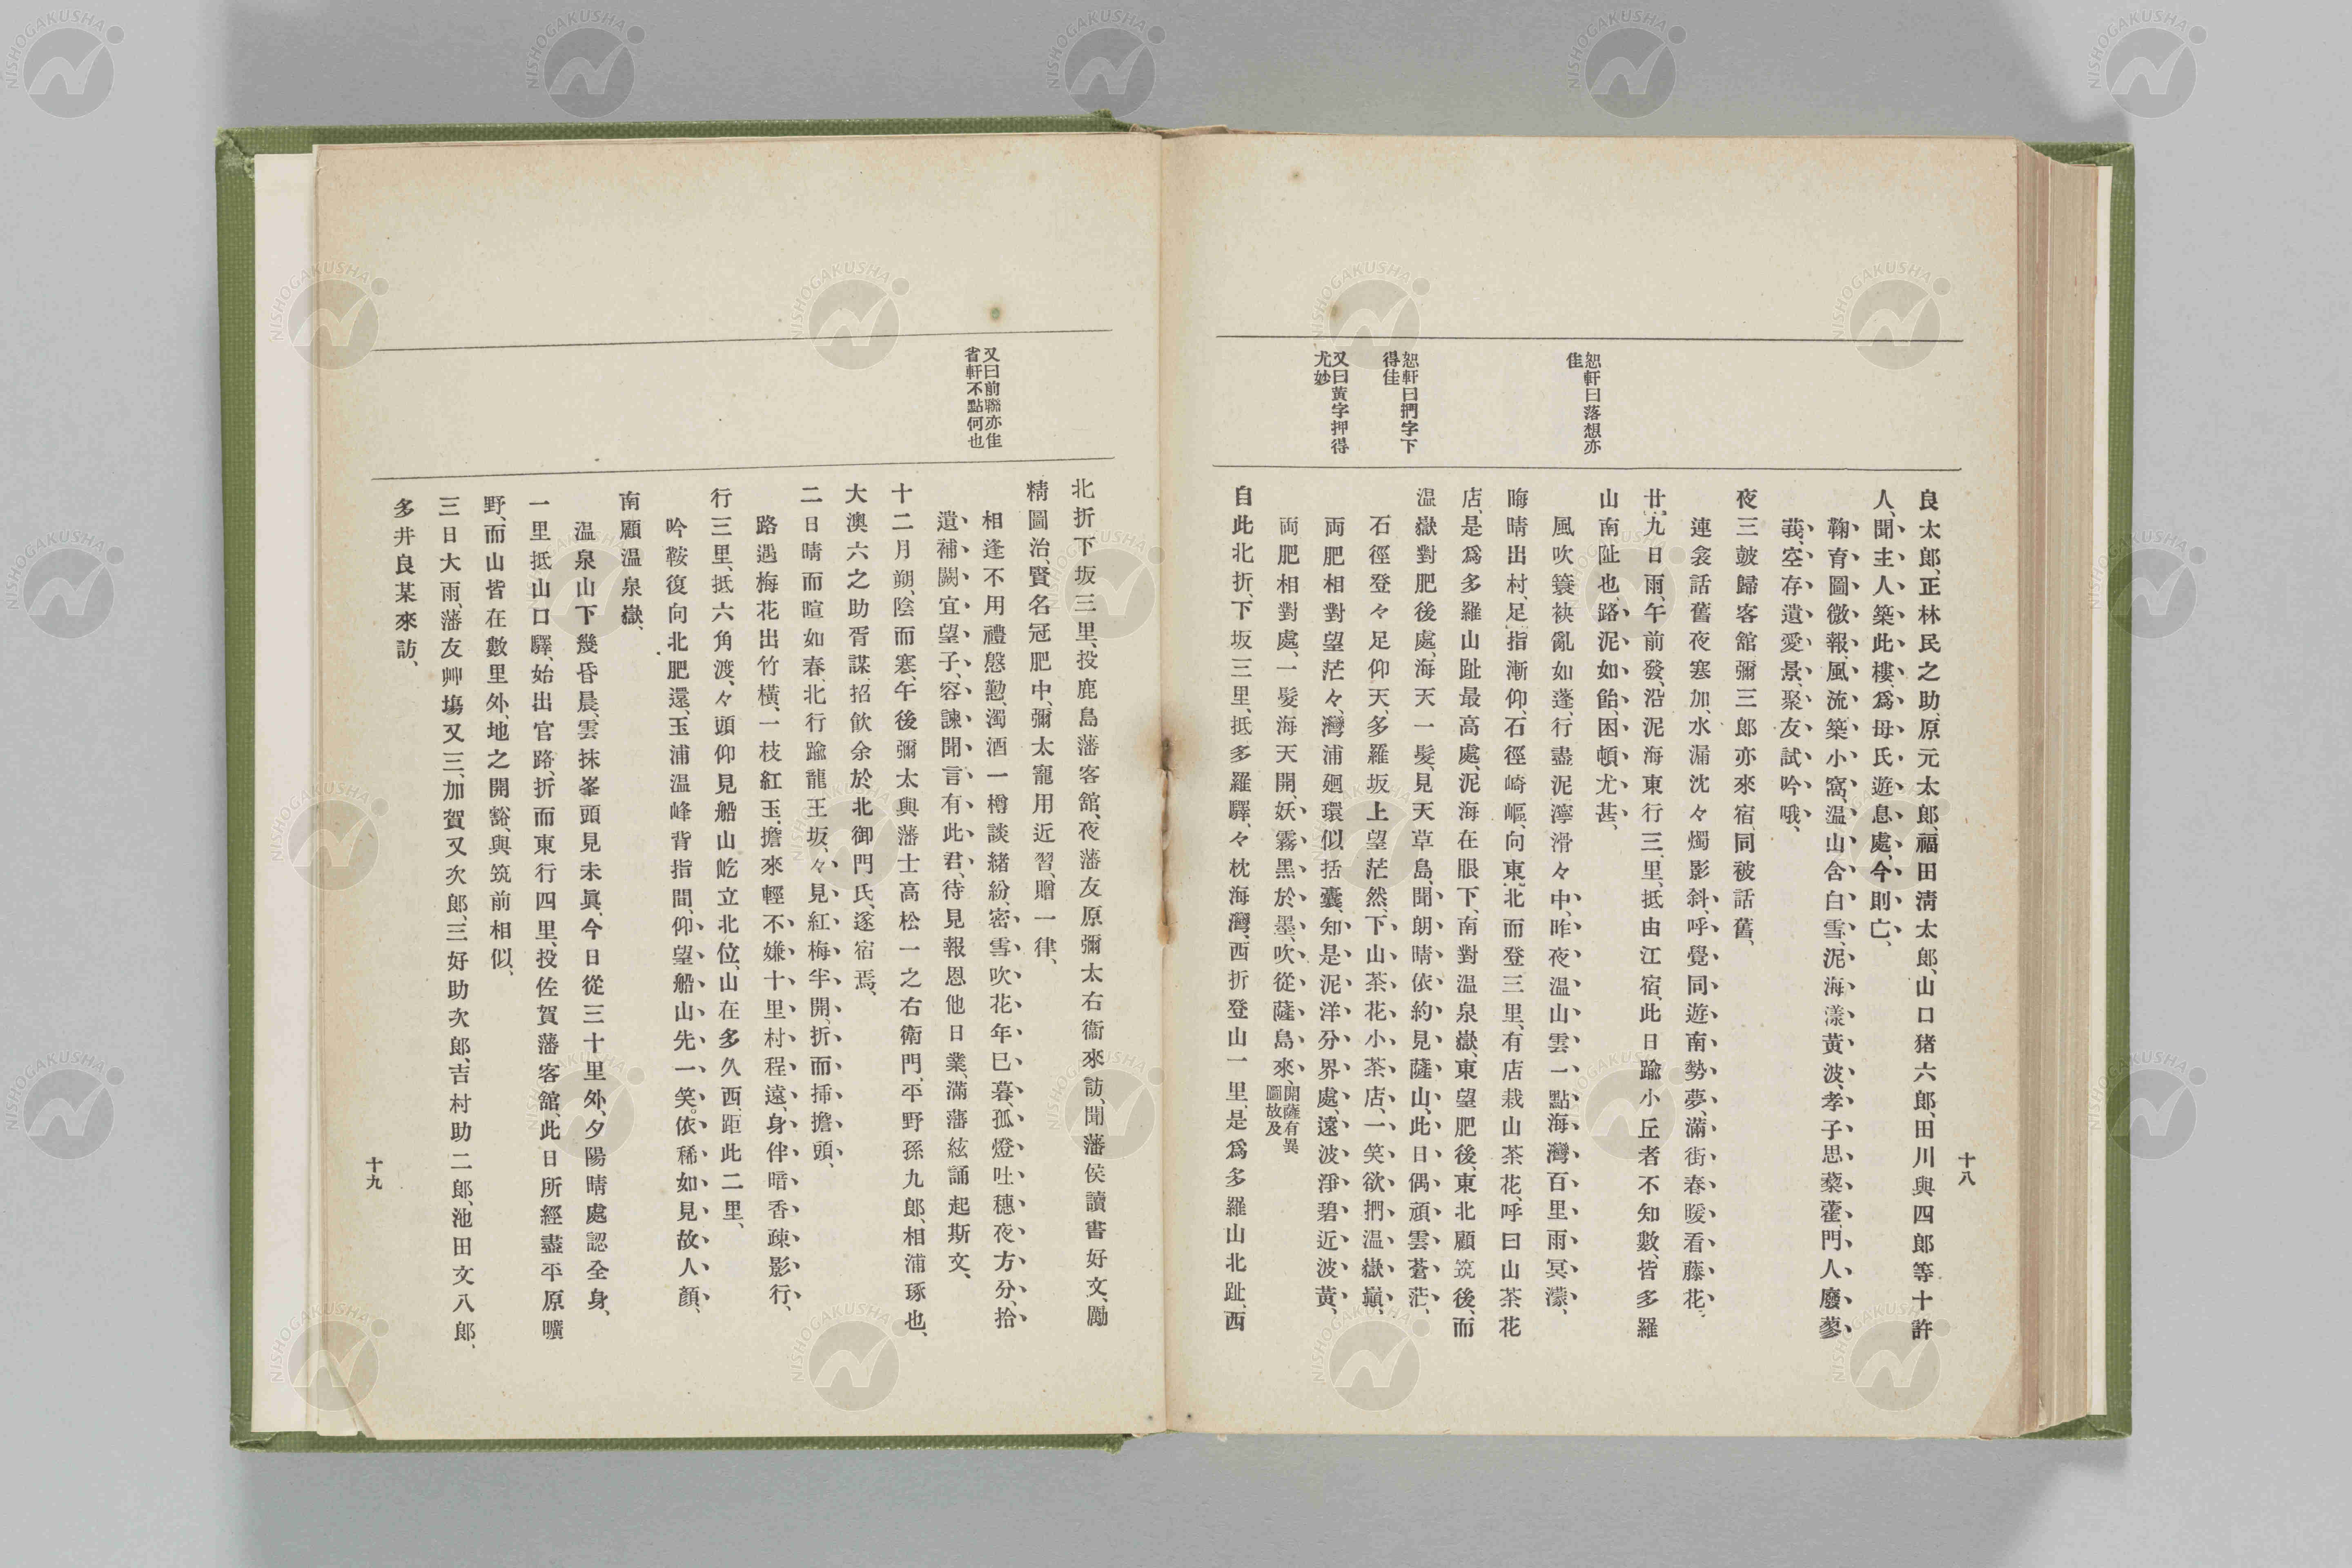 十八
恕軒曰落想亦
佳
恕軒曰捫字下
得佳
又曰黃字押得
尤妙
良太郎、正林民之助、原元太郎、福田淸太郎、山口猪六郎、田川與四郎等十許
人、聞主人築此樓、爲母氏遊息處、今則亡、
鞠育圖微報、風流築小窩、温山含白雪、泥海漾黃波、孝子思藜藿、門人廢蓼
莪、空存遺愛景、聚友試吟哦、
夜三皷歸客舘、彌三郎亦來宿、同被話舊、
連衾話舊夜寒加、水漏沈々燭影斜、呼覺同遊南勢夢、滿街春暖看藤花、
廿九日雨、午前發、沿泥海東行三里、抵由江宿、此日踰小丘者不知數、皆多羅
山南阯也、路泥如飴、困頓尤甚、
風吹簑袂亂如蓬、行盡泥濘滑々中、昨夜温山雲一點、海灣百里雨冥濛、
晦晴出村、足指漸仰、石徑崎嶇、向東北而登三里、有店栽山茶花、呼曰山茶花
店、是爲多羅山趾最高處、泥海在眼下、南對温泉嶽、東望肥後、東北顧筑後、而
温嶽對肥後處、海天一髮、見天草島、聞朗晴依約見薩山、此日偶頑雲蒼茫、
石徑登々足仰天、多羅坂上望茫然、下山茶花小茶店、一笑欲捫温嶽巓、
両肥相對望茫々、灣浦廻環似括囊、知是泥洋分界處、遠波淨碧近波黃、
両肥相對處、一髮海天開、妖霧黑於墨、吹從薩島來、聞薩有異
圖故及
自此北折、下坂三里、抵多羅驛、々枕海灣、西折登山一里、是爲多羅山北趾、西
又曰前聯亦佳
省軒不點何也
北折下坂三里、投鹿島藩客舘、夜藩友原彌太右衞來訪、聞藩侯讀書好文、勵
精圖治、賢名冠肥中、彌太寵用近習、贈一律、
相逢不用禮慇懃、濁酒一樽談緖紛、密雪吹花年已暮、孤燈吐穗夜方分、拾
遺補闕宜望子、容諫聞言有此君、待見報恩他日業、滿藩絃誦起斯文、
十二月朔、陰而寒、午後彌太與藩士高松一之右衛門、平野孫九郎、相浦琢也、
大澳六之助胥謀、招飮余於北御門氏、遂宿焉、
二日晴而暄如春、北行踰龍王坂、々見紅梅半開、折而揷擔頭、
路遇梅花出竹橫、一枝紅玉擔來輕、不嫌十里村程遠、身伴暗香疎影行、
行三里、抵六角渡、々頭仰見船山屹立北位、山在多久西、距此二里、
吟鞍復向北肥還、玉浦温峰背指間、仰望船山先一笑、依稀如見故人顏、
南顧温泉嶽、
温泉山下幾昏晨、雲抹峯頭見未眞、今日從三十里外、夕陽晴處認全身、
一里抵山口驛、始出官路、折而東行四里、投佐賀藩客舘、此日所經盡平原曠
野、而山皆在數里外、地之開豁、與筑前相似、
三日大雨、藩友艸塲又三、加賀又次郎、三好助次郎、吉村助二郎、池田文八郎、
多井良某來訪、
十九